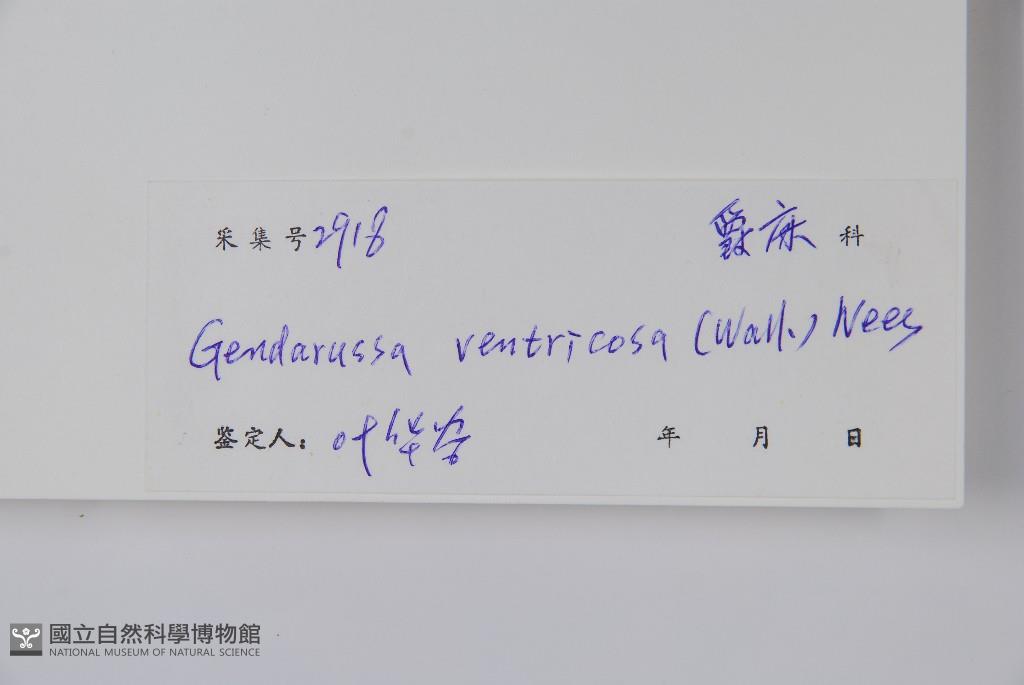 采集号 2918 爵床 科
Gendarussa ventricosa (Wall.) Nees
鉴定人: 叶华谷 年 月 日
國立自然科學博物館
NATIONAL MUSEUM OF NATURAL SCIENCE